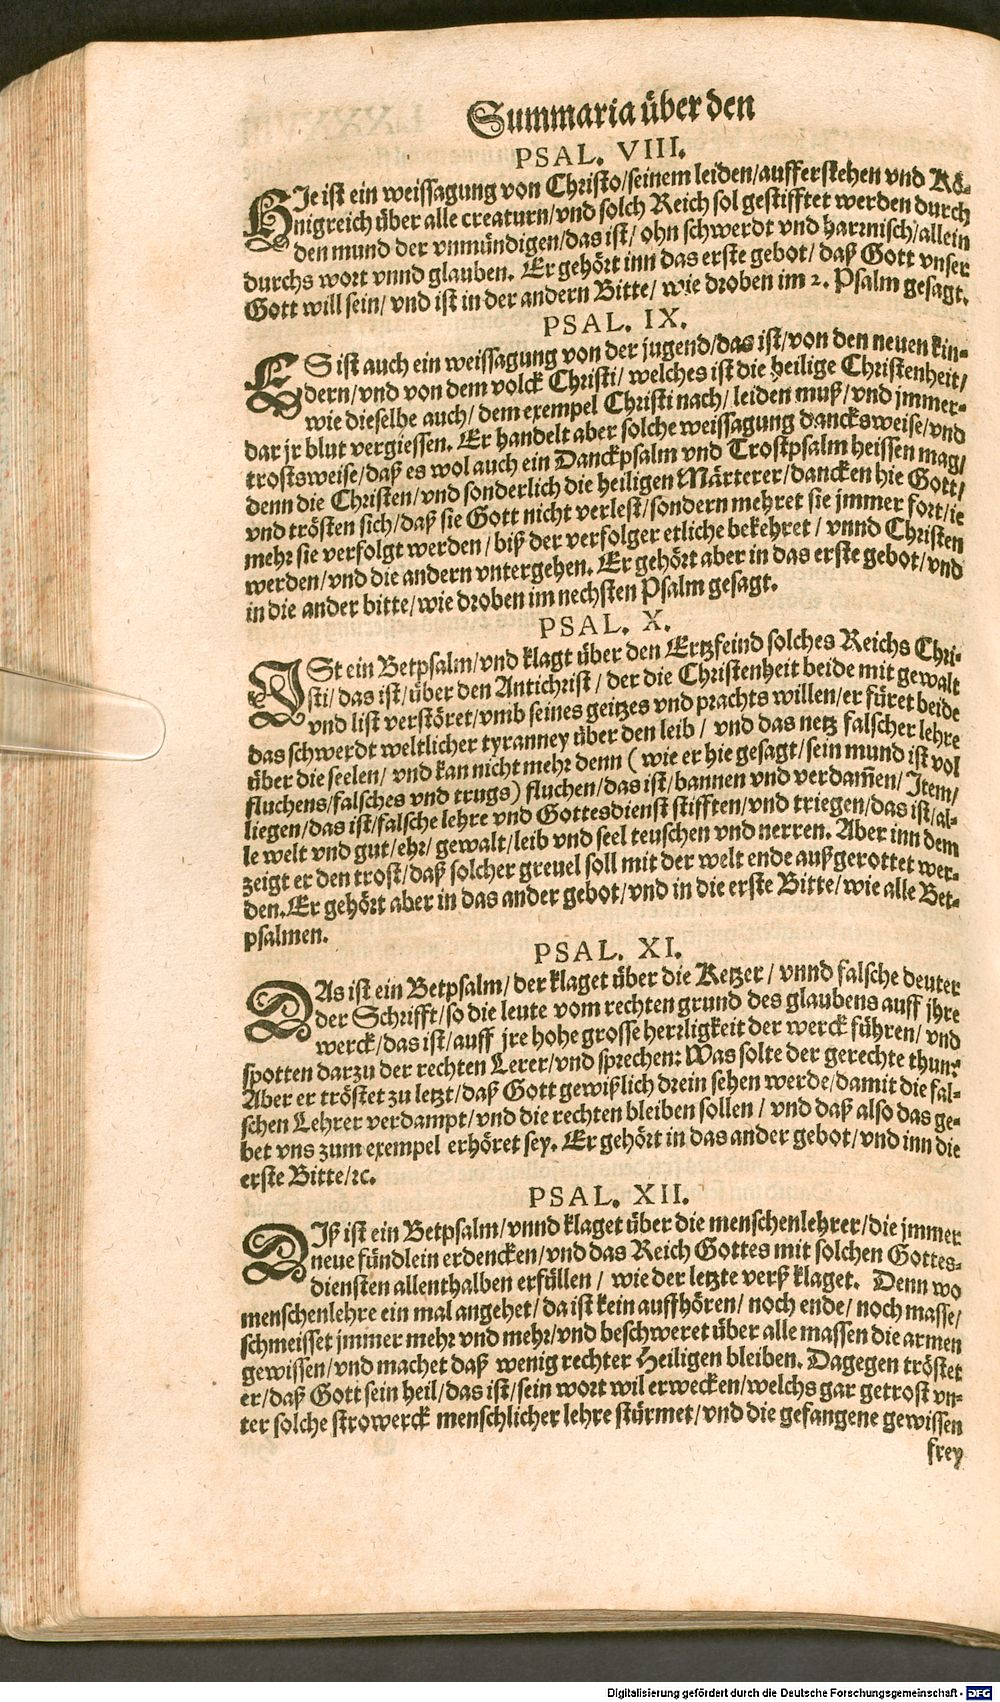 Summaria über den
PSAL. VIII.
HJe ist ein weissagung von Christo/seinem leiden/aufferstehen vnd Kö-
nigreich über alle creaturn/vnd solch Reich sol gestifftet werden durch
den mund der vnmündigen/das ist/ ohn schwerdt vnd harrnisch/allein
durchs wort vnnd glauben. Er gehört inn das erste gebot/ daß Gott vnser
Gott will sein/ vnd ist in der andern Bitte/ wie droben im 2. Psalm gesagt.
PSAL. IX.
ES ist auch ein weissagung von der jugend/das ist/von den neuen kin-
dern/vnd von dem volck Christi/ welches ist die heilige Christenheit/
wie dieselbe auch/ dem exempel Christi nach/ leiden muß/ vnd jmmer-
dar jr blut vergiessen. Er handelt aber solche weissagung dancksweise/vnd
trostsweise/daß es wol auch ein Danckpsalm vnd Trostpsalm heissen mag/
denn die Christen/vnd sonderlich die heiligen Märterer/dancken hie Gott/
vnd trösten sich/daß sie Gott nicht verlest/sondern mehret sie jmmer fort/je
mehr sie verfolgt werden/ biß der verfolger etliche bekehret/ vnnd Christen
werden/vnd die andern vntergehen. Er gehört aber in das erste gebot/vnd
in die ander bitte/wie droben im nechsten Psalm gesagt.
PSAL. X.
ISt ein Betpsalm/vnd klagt über den Ertzfeind solches Reichs Chri-
sti/das ist/über den Antichrist/ der die Christenheit beide mit gewalt
vnd list verstöret/vmb seines geitzes vnd prachts willen/er füret beide
das schwerdt weltlicher tyranney über den leib/ vnd das netz falscher lehre
über die seelen/ vnd kan nicht mehr denn (wie er hie gesagt/sein mund ist vol
fluchens/falsches vnd trugs) fluchen/das ist/bannen vnd verdam̃en/ Item/
liegen/das ist/falsche lehre vnd Gottesdienst stifften/vnd triegen/das ist/al-
le welt vnd gut/ehr/ gewalt/leib vnd seel teuschen vnd nerren. Aber inn dem
zeigt er den trost/daß solcher greuel soll mit der welt ende außgerottet wer-
den.Er gehört aber in das ander gebot/vnd in die erste Bitte/wie alle Bet-
psalmen.
PSAL. XI.
DAs ist ein Betpsalm/ der klaget über die Ketzer/ vnnd falsche deuter
der Schrifft/so die leute vom rechten grund des glaubens auff ihre
werck/das ist/auff jre hohe grosse herrligkeit der werck führen/ vnd
spotten darzu der rechten Lerer/vnd sprechen: Was solte der gerechte thun?
Aber er tröstet zu letzt/daß Gott gewißlich drein sehen werde/damit die fal-
schen Lehrer verdampt/vnd die rechten bleiben sollen/ vnd daß also das ge-
bet vns zum exempel erhöret sey. Er gehört in das ander gebot/vnd inn die
erste Bitte/ꝛc.
PSAL. XII.
DIß ist ein Betpsalm/vnnd klaget über die menschenlehrer/die jmmer
neue fündlein erdencken/vnd das Reich Gottes mit solchen Gottes-
diensten allenthalben erfüllen/ wie der letzte verß klaget. Denn wo
menschenlehre ein mal angehet/ da ist kein auffhören/ noch ende/ noch masse/
schmeisset jmmer mehr vnd mehr/vnd beschweret über alle massen die armen
gewissen/vnd machet daß wenig rechter Heiligen bleiben. Dagegen tröstet
er/daß Gott sein heil/das ist/sein wort wil erwecken/welchs gar getrost vn-
ter solche strowerck menschlicher lehre stürmet/vnd die gefangene gewissen
frey
Digitalisierung gefördert durch die Deutsche Forschungsgemeinschaft - DFG